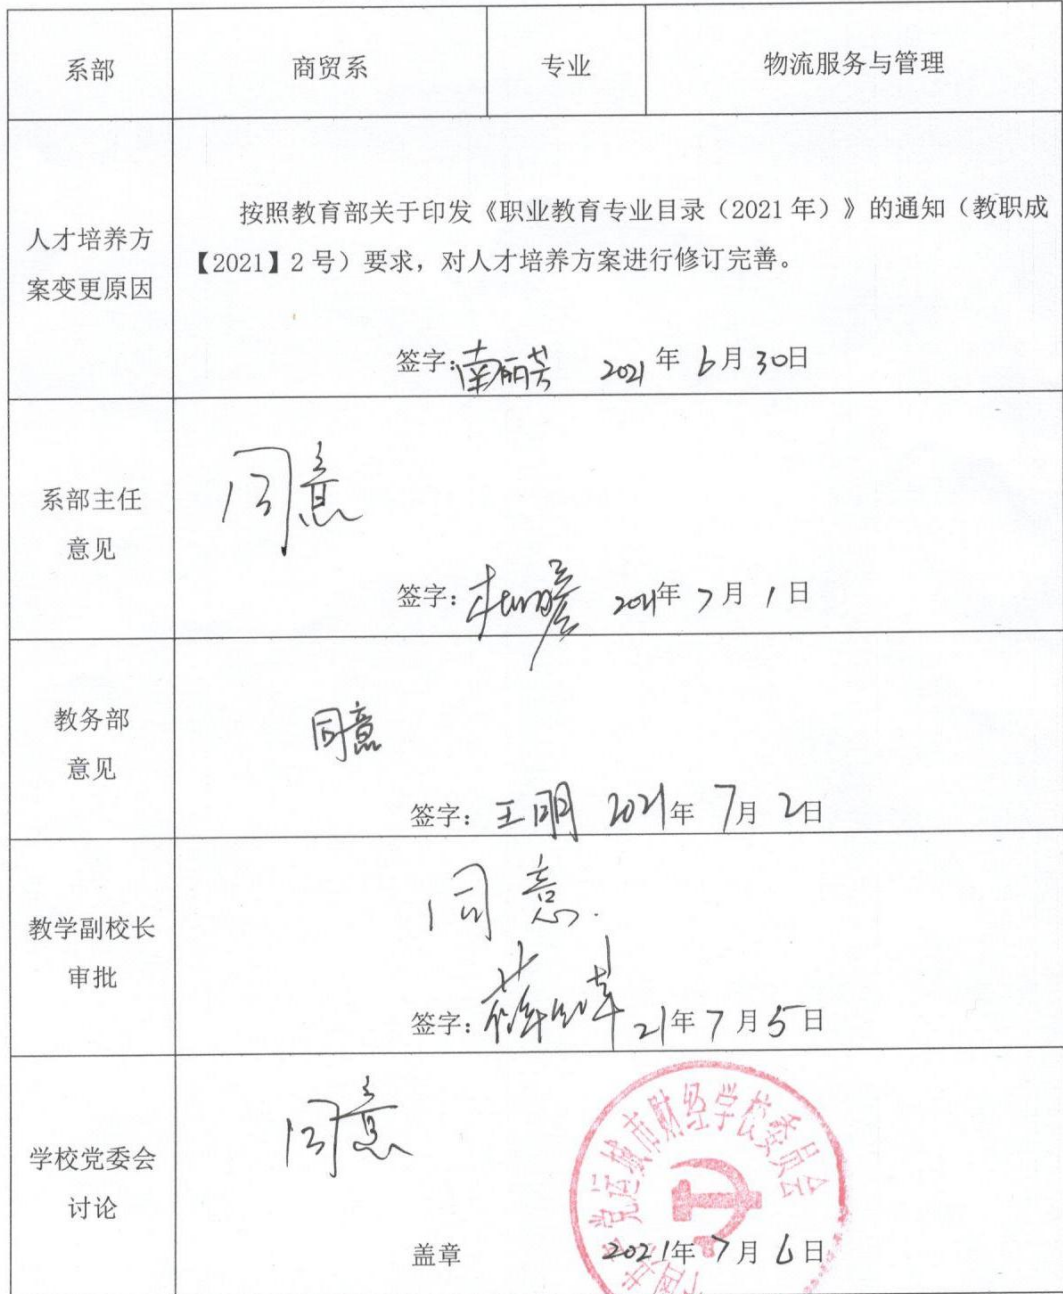 系部 商贸系 专业 物流服务与管理
人才培养方
案变更原因
按照教育部关于印发《职业教育专业目录（2021年）》的通知（教职成
【2021】2号）要求，对人才培养方案进行修订完善。
签字：南丽芳 2021年6月30日
系部主任
意见
同意
签字： 2021年7月1日
教务部
意见
同意
签字：王明 2021年7月2日
教学副校长
审批
同意.
签字： 21年7月5日
学校党委会
讨论
同意
中国共产党运城市财经学校委员会
盖章 2021年7月6日